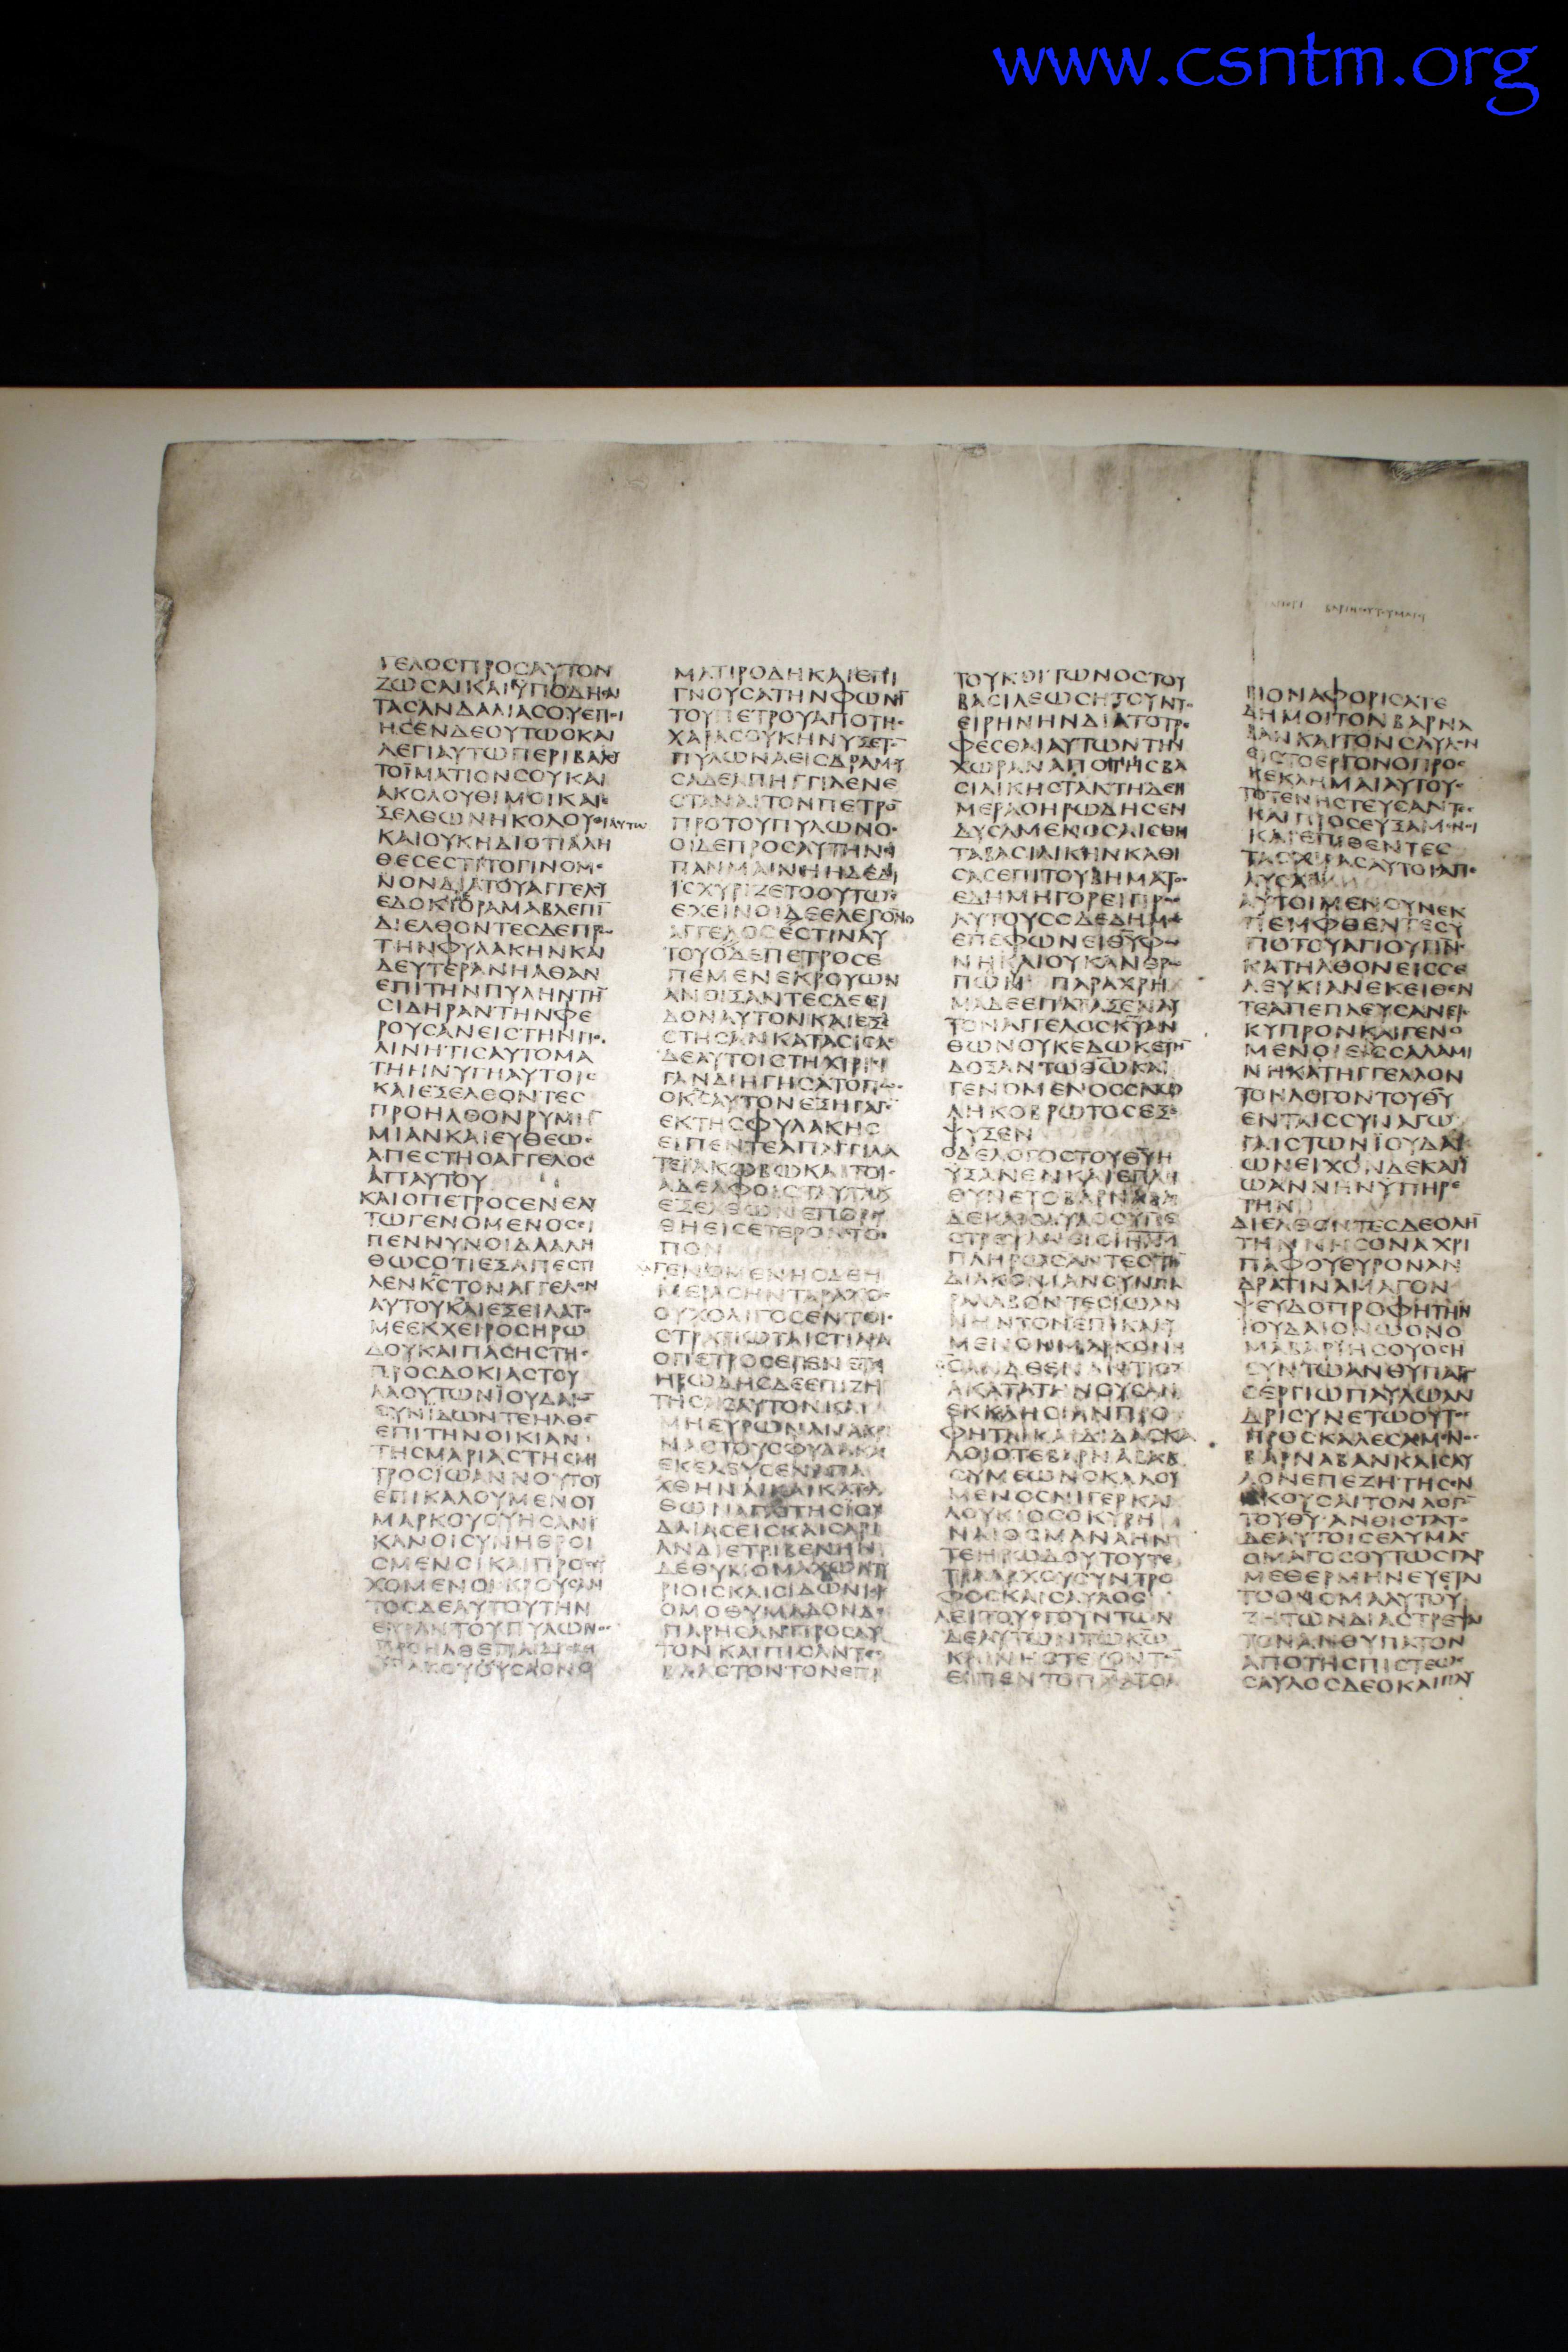 www.csntm.org
ΓΕΛΟCΠΡΟCΑΥΤΟΝ
ΖΩCΑΙΚΑΙΫΠΟΔΗCΑΙ
ΤΑCΑΝΔΑΛΙΑCΟΥΕΠΟΙ
ΗCΕΝΔΕΟΥΤΩCΚΑΙ
ΛΕΓΙΑΥΤΩΠΕΡΙΒΑΛΟΥ
ΤΟΪΜΑΤΙΟΝCΟΥΚΑΙ
ΑΚΟΛΟΥΘΙΜΟΙΚΑΙΕ
ΞΕΛΘΩΝΗΚΟΛΟΥΘΙΑΥΤΩ
ΚΑΙΟΥΚΗΔΙΟΤΙΑΛΗ
ΘΕCΕCΤΙΤΟΓΙΝΟΜΕ
ΝΟΝΔΙΑΤΟΥΑΓΓΕΛΟΥ
ΕΔΟΚΙΟΡΑΜΑΒΛΕΠΙ
ΔΙΕΛΘΟΝΤΕCΔΕΠΡΩ
ΤΗΝΦΥΛΑΚΗΝΚΑΙ
ΔΕΥΤΕΡΑΝΗΛΘΑΝ
ΕΠΙΤΗΝΠΥΛΗΝΤΗ
CΙΔΗΡΑΝΤΗΝΦΕ
ΡΟΥCΑΝΕΙCΤΗΝΠΟ
ΛΙΝΗΤΙCΑΥΤΟΜΑ
ΤΗΗΝΥΓΗΑΥΤΟΙC
ΚΑΙΕΞΕΛΘΟΝΤΕC
ΠΡΟΗΛΘΟΝΡΥΜΗ
ΜΙΑΝΚΑΙΕΥΘΕΩC
ΑΠΕCΤΗΟΑΓΓΕΛΟC
ΑΠΑΥΤΟΥ
ΚΑΙΟΠΕΤΡΟCΕΝΕΑΥ
ΤΩΓΕΝΟΜΕΝΟCΕΙ
ΠΕΝΝΥΝΟΙΔΑΑΛΗ
ΘΩCΟΤΙΕΞΑΠΕCΤΙ
ΛΕΝΚCΤΟΝΑΓΓΕΛΟΝ
ΑΥΤΟΥΚΑΙΕΞΕΙΛΑΤΟ
ΜΕΕΚΧΕΙΡΟCΗΡΩ
ΔΟΥΚΑΙΠΑCΗCΤΗC
ΠΡΟCΔΟΚΙΑCΤΟΥ
ΛΑΟΥΤΩΝΪΟΥΔΑΙΩ
CΥΝΪΔΩΝΤΕΗΛΘΕ
ΕΠΙΤΗΝΟΙΚΙΑΝ
ΤΗCΜΑΡΙΑCΤΗCΜΗ
ΤΡΟCΪΩΑΝΝΟΥΤΟΥ
ΕΠΙΚΑΛΟΥΜΕΝΟΥ
ΜΑΡΚΟΥΟΥΗCΑΝΙ
ΚΑΝΟΙCΥΝΗΘΡΟΙ
CΜΕΝΟΙΚΑΙΠΡΟCΕΥ
ΧΟΜΕΝΟΙΚΡΟΥCΑΝ
ΤΟCΔΕΑΥΤΟΥΤΗΝ
ΘΥΡΑΝΤΟΥΠΥΛΩΝΟC
ΠΡΟΗΛΘΕΠΑΙΔΙCΚΗ
ΥΠΑΚΟΥΟΥCΑΟΝΟ
ΜΑΤΙΡΟΔΗΚΑΙΕΠΙ
ΓΝΟΥCΑΤΗΝΦΩΝΗ
ΤΟΥΠΕΤΡΟΥΑΠΟΤΗC
ΧΑΡΑCΟΥΚΗΝΥΞΕΤΟ
ΠΥΛΩΝΑΕΙCΔΡΑΜΟΥ
CΑΔΕΑΠΗΓΓΙΛΕΝΕ
CΤΑΝΑΙΤΟΝΠΕΤΡΟ
ΠΡΟΤΟΥΠΥΛΩΝΟC
ΟΙΔΕΠΡΟCΑΥΤΗΝΕΙ
ΠΑΝΜΑΙΝΗΗΔΕΔΙ
ΙCΧΥΡΙΖΕΤΟΟΥΤΩC
ΕΧΕΙΝΟΙΔΕΕΛΕΓΟΝΟ
ΑΓΓΕΛΟCΕCΤΙΝΑΥ
ΤΟΥΟΔΕΠΕΤΡΟCΕ
ΠΕΜΕΝΕΚΡΟΥΩΝ
ΑΝΟΙΞΑΝΤΕCΔΕΕΙ
ΔΟΝΑΥΤΟΝΚΑΙΕΞΕ
CΤΗCΑΝΚΑΤΑCΙCΑC
ΔΕΑΥΤΟΙCΤΗΧΙΡΙCΙ
ΓΑΝΔΙΗΓΗCΑΤΟΠΩC
ΟΚCΑΥΤΟΝΕΞΗΓΑΓΕ
ΕΚΤΗCΦΥΛΑΚΗC
ΕΙΠΕΝΤΕΑΠΑΓΓΙΛΑ
ΤΕΪΑΚΩΒΩΚΑΙΤΟΙC
ΑΔΕΛΦΟΙCΤΑΥΤΑΚΑΙ
ΕΞΕΛΘΩΝΕΠΟΡΕΥ
ΘΗΕΙCΕΤΕΡΟΝΤΟ
ΠΟΝ
ΓΕΝΟΜΕΝΗCΔΕΗ
ΜΕΡΑCΗΝΤΑΡΑΧΟC
ΟΥΧΟΛΙΓΟCΕΝΤΟΙC
CΤΡΑΤΙΩΤΑΙCΤΙΑΡΑ
ΟΠΕΤΡΟCΕΓΕΝΕΤΟ
ΗΡΩΔΗCΔΕΕΠΙΖΗ
ΤΗCΑCΑΥΤΟΝΚΑΙ
ΜΗΕΥΡΩΝΑΝΑΚΡΙ
ΝΑCΤΟΥCΦΥΛΑΚΑC
ΕΚΕΛΕΥCΕΝΑΠΑ
ΧΘΗΝΑΙΚΑΙΚΑΤΕΛ
ΘΩΝΑΠΟΤΗCΪΟΥ
ΔΑΙΑCΕΙCΚΑΙCΑΡΙ
ΑΝΔΙΕΤΡΙΒΕΝΗΝ
ΔΕΘΥΜΟΜΑΧΩΝΤΥ
ΡΙΟΙCΚΑΙCΙΔΩΝΙΟΙC
ΟΜΟΘΥΜΑΔΟΝΔΕ
ΠΑΡΗCΑΝΠΡΟCΑΥ
ΤΟΝΚΑΙΠΙCΑΝΤΕC
ΒΛΑCΤΟΝΤΟΝΕΠΙ
ΤΟΥΚΟΙΤΩΝΟCΤΟΥ
ΒΑCΙΛΕΩCΗΤΟΥΝΤΟ
ΕΙΡΗΝΗΝΔΙΑΤΟΤΡΕ
ΦΕCΘΑΙΑΥΤΩΝΤΗΝ
ΧΩΡΑΝΑΠΟΤΗCΒΑ
CΙΛΙΚΗCΤΑΚΤΗΔΕΗ
ΜΕΡΑΟΗΡΩΔΗCΕΝ
ΔΥCΑΜΕΝΟCΑΙCΘΗ
ΤΑΒΑCΙΛΙΚΗΝΚΑΘΙ
CΑCΕΠΙΤΟΥΒΗΜΑΤΟC
ΕΔΗΜΗΓΟΡΕΙΠΡΟC
ΑΥΤΟΥCΟΔΕΔΗΜΟC
ΕΠΕΦΩΝΕΙΘΥΦΩ
ΝΗΚΑΙΟΥΚΑΝΘΡΩ
ΠΟΥ ΠΑΡΑΧΡΗ
ΜΑΔΕΕΠΑΤΑΞΕΝΑΥ
ΤΟΝΑΓΓΕΛΟCΚΥΑΝ
ΘΩΝΟΥΚΕΔΩΚΕΤΗ
ΔΟΞΑΝΤΩΘΩΚΑΙ
ΓΕΝΟΜΕΝΟCCΚΩ
ΛΗΚΟΒΡΩΤΟCΕΞΕ
ΨΥΞΕΝ
ΟΔΕΛΟΓΟCΤΟΥΘΥΗ
ΥΞΑΝΕΝΚΑΙΕΠΛΗ
ΘΥΝΕΤΟΒΑΡΝΑΒΑC
ΔΕΚΑΙCΑΥΛΟCΥΠΕ
CΤΡΕΨΑΝΕΙCΙΗΛΜ
ΠΛΗΡΩCΑΝΤΕCΤΗ
ΔΙΑΚΟΝΙΑΝCΥΝΠΑ
ΡΑΛΑΒΟΝΤΕCΪΩΑΝ
ΝΗΝΤΟΝΕΠΙΚΛΗ
ΜΑΡΚΟΝΗ
CΑΝΔΕΕΝΑΝΤΙΟΧΙ
ΑΚΑΤΑΤΗΝΟΥCΑΝ
ΕΚΚΛΗCΙΑΝΠΡΟ
ΦΗΤΑΙΚΑΙΔΙΔΑCΚΑ
ΛΟΙΟΤΕΒΑΡΝΑΒΑCΚΑΙ
CΥΜΕΩΝΟΚΑΛΟΥ
ΜΕΝΟCΝΙΓΕΡΚΑΙ
ΛΟΥΚΙΟCΟΚΥΡΗ
ΝΑΙΟCΜΑΝΑΗΝ
ΤΕΗΡΩΔΟΥΤΟΥΤΕ
ΤΡΑΑΡΧΟΥCΥΝΤΡΟ
ΦΟCΚΑΙCΑΥΛΟC
ΛΕΙΤΟΥΡΓΟΥΝΤΩΝ
ΔΕΑΥΤΩΝΤΩΚΩ
ΚΑΙΝΗCΤΕΥΟΝΤΩ
ΕΙΠΕΝΤΟΠΝΑΤΟΑ
ΓΙΟΝΑΦΟΡΙCΑΤΕ
ΔΗΜΟΙΤΟΝΒΑΡΝΑ
ΒΑΝΚΑΙΤΟΝCΑΥΛΟΝ
ΕΙCΤΟΕΡΓΟΝΟΠΡΟC
ΚΕΚΛΗΜΑΙΑΥΤΟΥC
ΤΟΤΕΝΗCΤΕΥCΑΝΤΕC
ΚΑΙΠΡΟCΕΥΞΑΜΕΝΟΙ
ΚΑΙΕΠΙΘΕΝΤΕC
ΤΑCΧΙΡΑCΑΥΤΟΙCΑΠΕ
ΛΥCΑΝ
ΑΥΤΟΙΜΕΝΟΥΝΕΚ
ΠΕΜΦΘΕΝΤΕCΥ
ΠΟΤΟΥΑΓΙΟΥΠΝC
ΚΑΤΗΛΘΟΝΕΙCCΕ
ΛΕΥΚΙΑΝΕΚΕΙΘΕΝ
ΤΕΑΠΕΠΛΕΥCΑΝΕΙC
ΚΥΠΡΟΝΚΑΙΓΕΝΟ
ΜΕΝΟΙΕΙCCΑΛΑΜΙ
ΝΗΚΑΤΗΓΓΕΛΛΟΝ
ΤΟΝΛΟΓΟΝΤΟΥΘΥ
ΕΝΤΑΙCCΥΝΑΓΩ
ΓΑΙCΤΩΝΪΟΥΔΑΙ
ΩΝΕΙΧΟΝΔΕΚΑΙΪ
ΩΑΝΝΗΝΥΠΗΡΕ
ΤΗΝ
ΔΙΕΛΘΟΝΤΕCΔΕΟΛΗ
ΤΗΝΝΗCΟΝΑΧΡΙ
ΠΑΦΟΥΕΥΡΟΝΑΝ
ΔΡΑΤΙΝΑΜΑΓΟΝ
ΨΕΥΔΟΠΡΟΦΗΤΗΝ
ΙΟΥΔΑΙΟΝΩΟΝΟ
ΜΑΒΑΡΙΗCΟΥΟCΗ
CΥΝΤΩΑΝΘΥΠΑΤΩ
CΕΡΓΙΩΠΑΥΛΩΑΝ
ΔΡΙCΥΝΕΤΩΟΥΤΟC
ΠΡΟCΚΑΛΕCΑΜΕΝΟC
ΒΑΡΝΑΒΑΝΚΑΙCΑΥ
ΛΟΝΕΠΕΖΗΤΗCΕΝ
ΑΚΟΥCΑΙΤΟΝΛΟΓΟ
ΤΟΥΘΥΑΝΘΙCΤΑΤΟ
ΔΕΑΥΤΟΙCΕΛΥΜΑC
ΟΜΑΓΟCΟΥΤΩCΓΑΡ
ΜΕΘΕΡΜΗΝΕΥΕΤΑΙ
ΤΟΟΝΟΜΑΑΥΤΟΥ
ΖΗΤΩΝΔΙΑCΤΡΕΨΑΙ
ΤΟΝΑΝΘΥΠΑΤΟΝ
ΑΠΟΤΗCΠΙCΤΕΩC
CΑΥΛΟCΔΕΟΚΑΙΠΑΥ